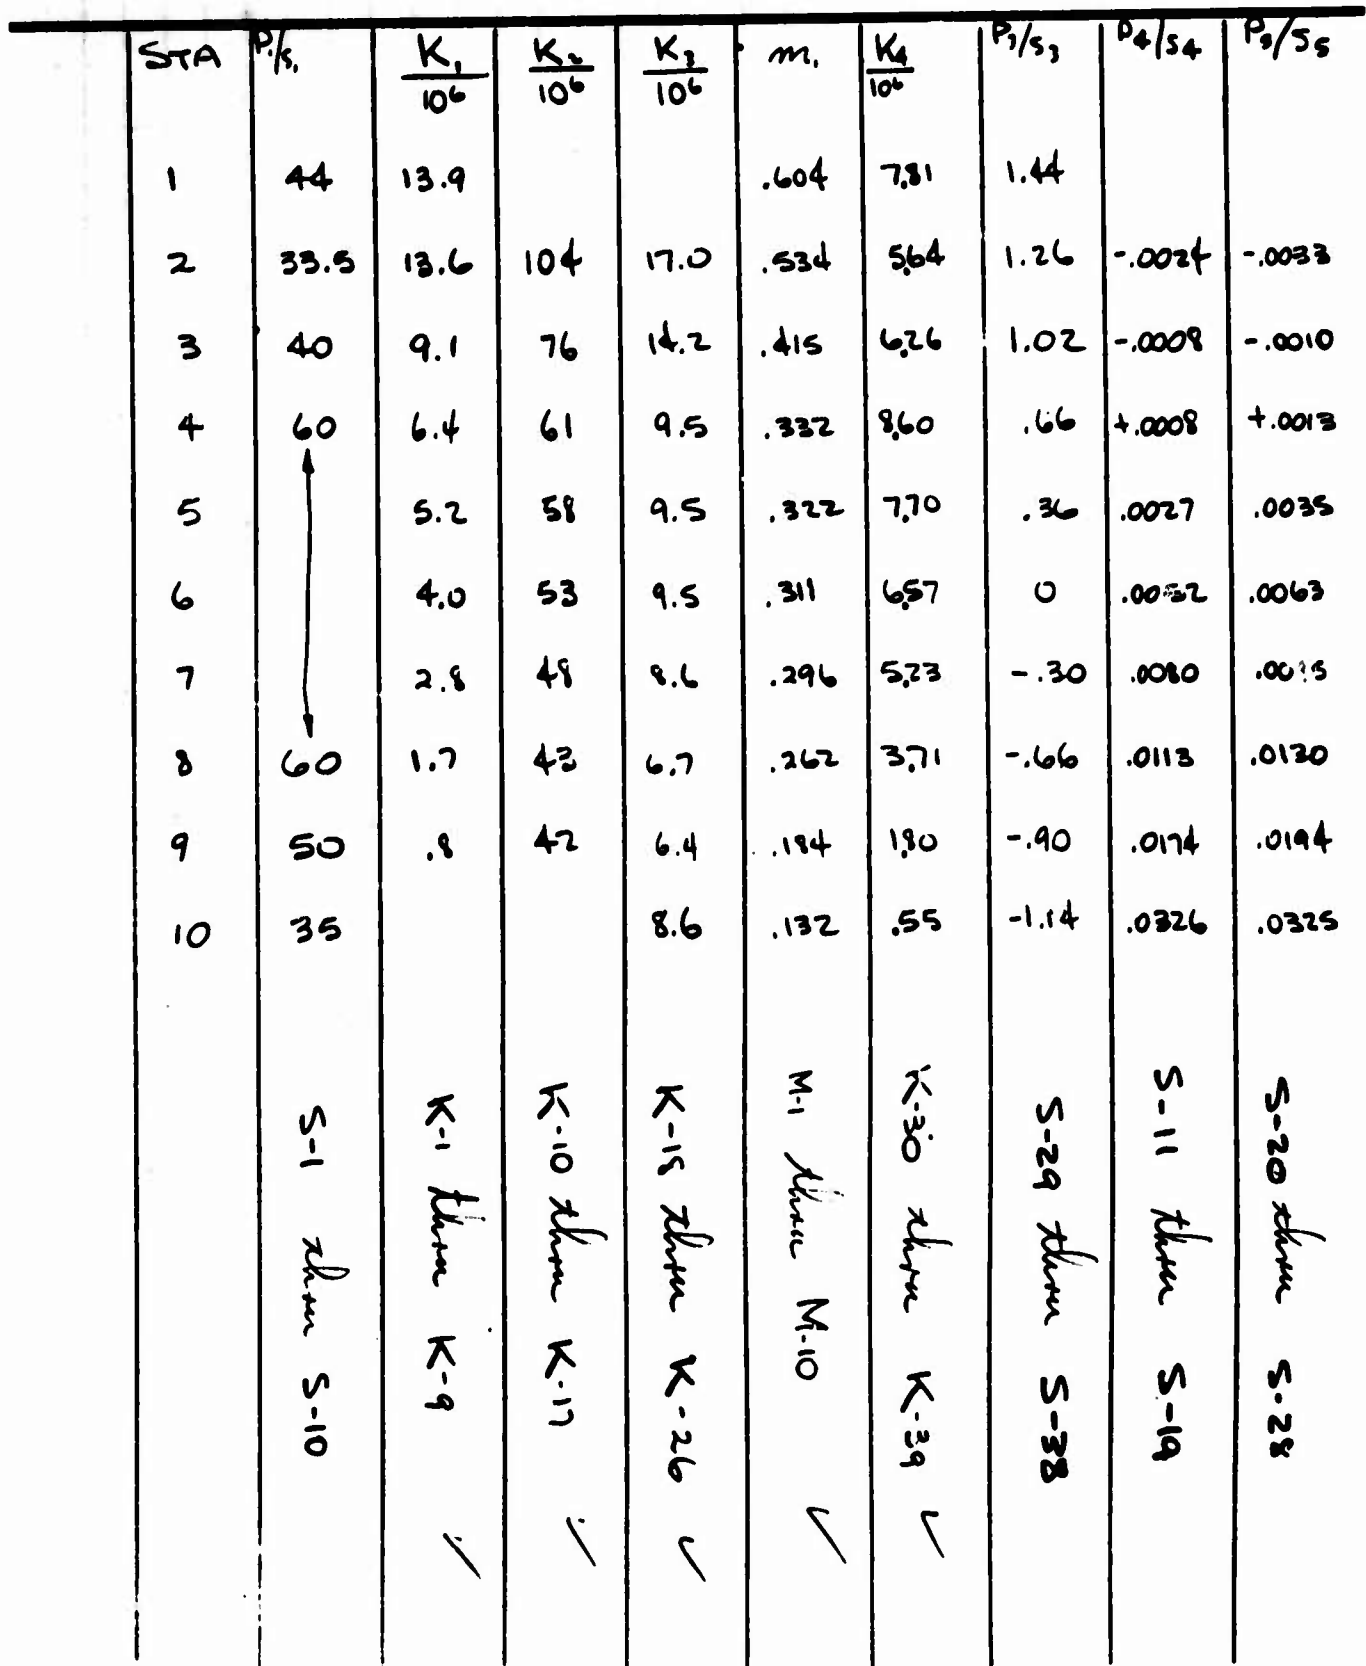 STA P1/S1 K1/10^6 K2/10^6 K3/10^6 m1 K4/10^6 P3/S3 P4/S4 P5/S5
1 44 13.9 .604 7.81 1.44
2 33.5 13.6 104 17.0 .534 5.64 1.26 -.0024 -.0033
3 40 9.1 76 14.2 .415 6.26 1.02 -.0008 -.0010
4 60 6.4 61 9.5 .332 8.60 .66 +.0008 +.0013
5 5.2 58 9.5 .322 7.70 .36 .0027 .0035
6 4.0 53 9.5 .311 6.57 0 .0063
7 2.8 48 8.6 .296 5.23 -.30 .0080
8 60 1.7 43 6.7 .262 3.71 -.66 .0113 .0130
9 50 .8 42 6.4 .184 1.80 -.90 .0174 .0194
10 35 8.6 .132 .55 -1.14 .0326 .0325
S-1 thru S-10
K-1 thru K-9 ✓
K-10 thru K-17 ✓
K-18 thru K-26 ✓
M-1 thru M-10 ✓
K-30 thru K-39 ✓
S-29 thru S-38
S-11 thru S-19
S-20 thru S-28